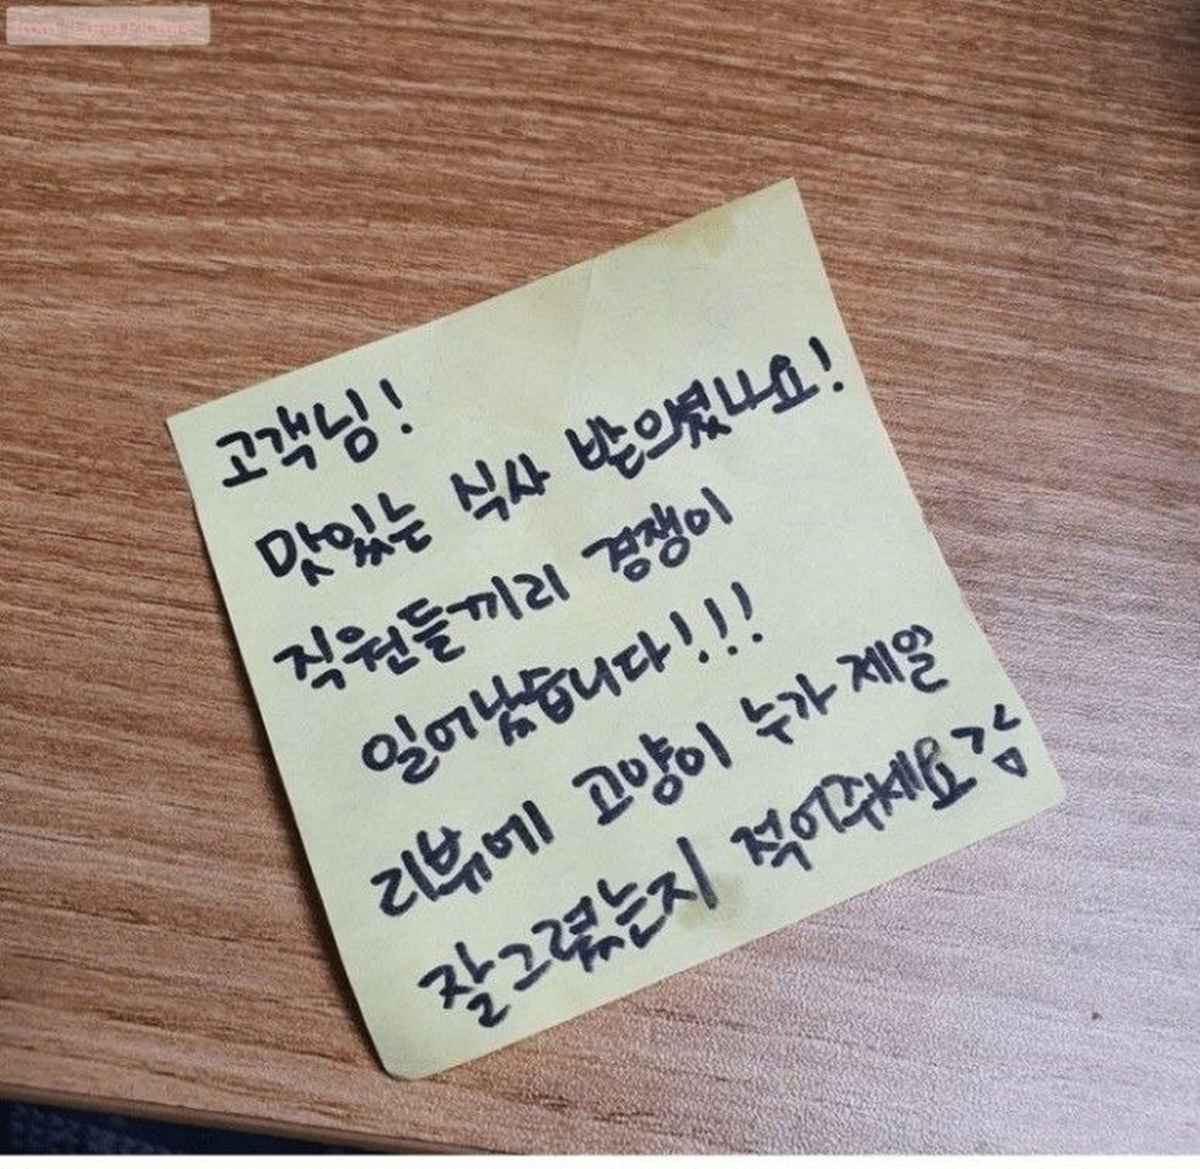 고객님!
맛있는 식사 받의셨나요!
직원들끼리 경쟁이
일어났습니다!!!
리뷰에 고양이 누가 제일
잘그렸는지 적어주세요